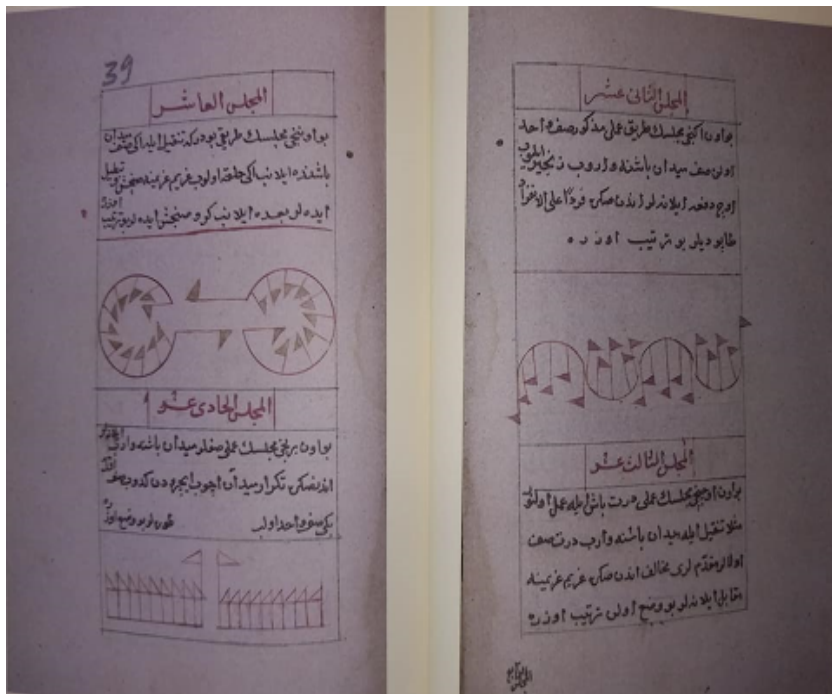 39
المجلس العاشر
بو اوننجى مجلسك طريقى بودركه تنقيل ايله ايكى صف ميدان
باشنده ايلانب ايكى حلقه اولوب غريم غريمنه صنجش
ايده لر بعده ايلانب كرو صنجش ايده لر بو ترتيب اوزره
المجلس الحادى عشر
بو اون برنجى مجلسك عملى صفلر ميدان باشنه وارب
اندنصكره تكرار ميدان اچوب ايچره دن كدوب صف
يكى صف واحد اولب طورلر بو وضع اوزره
المجلس الثانى عشر
بو اون ايكنجى مجلسك طريق عملى مذكور صف واحد
اولن صف ميدان باشنه واروب زنجير
اوچ دفعه ايلانه لر اندن صكره فردًا على الانفراد
طاپو ديلر بو ترتيب اوزره
المجلس الثالث عشر
بو اون اوچنجى مجلسك عملى درت باش ايله عمل اولنور
مثلا تنقيل ايله ميدان باشنه وارب درت صف
اولالر مقدّم لرى مخالف اندن صكره غريم غريمينه
مقابل ايلانه لر بو وضع اولى ترتيب اوزره